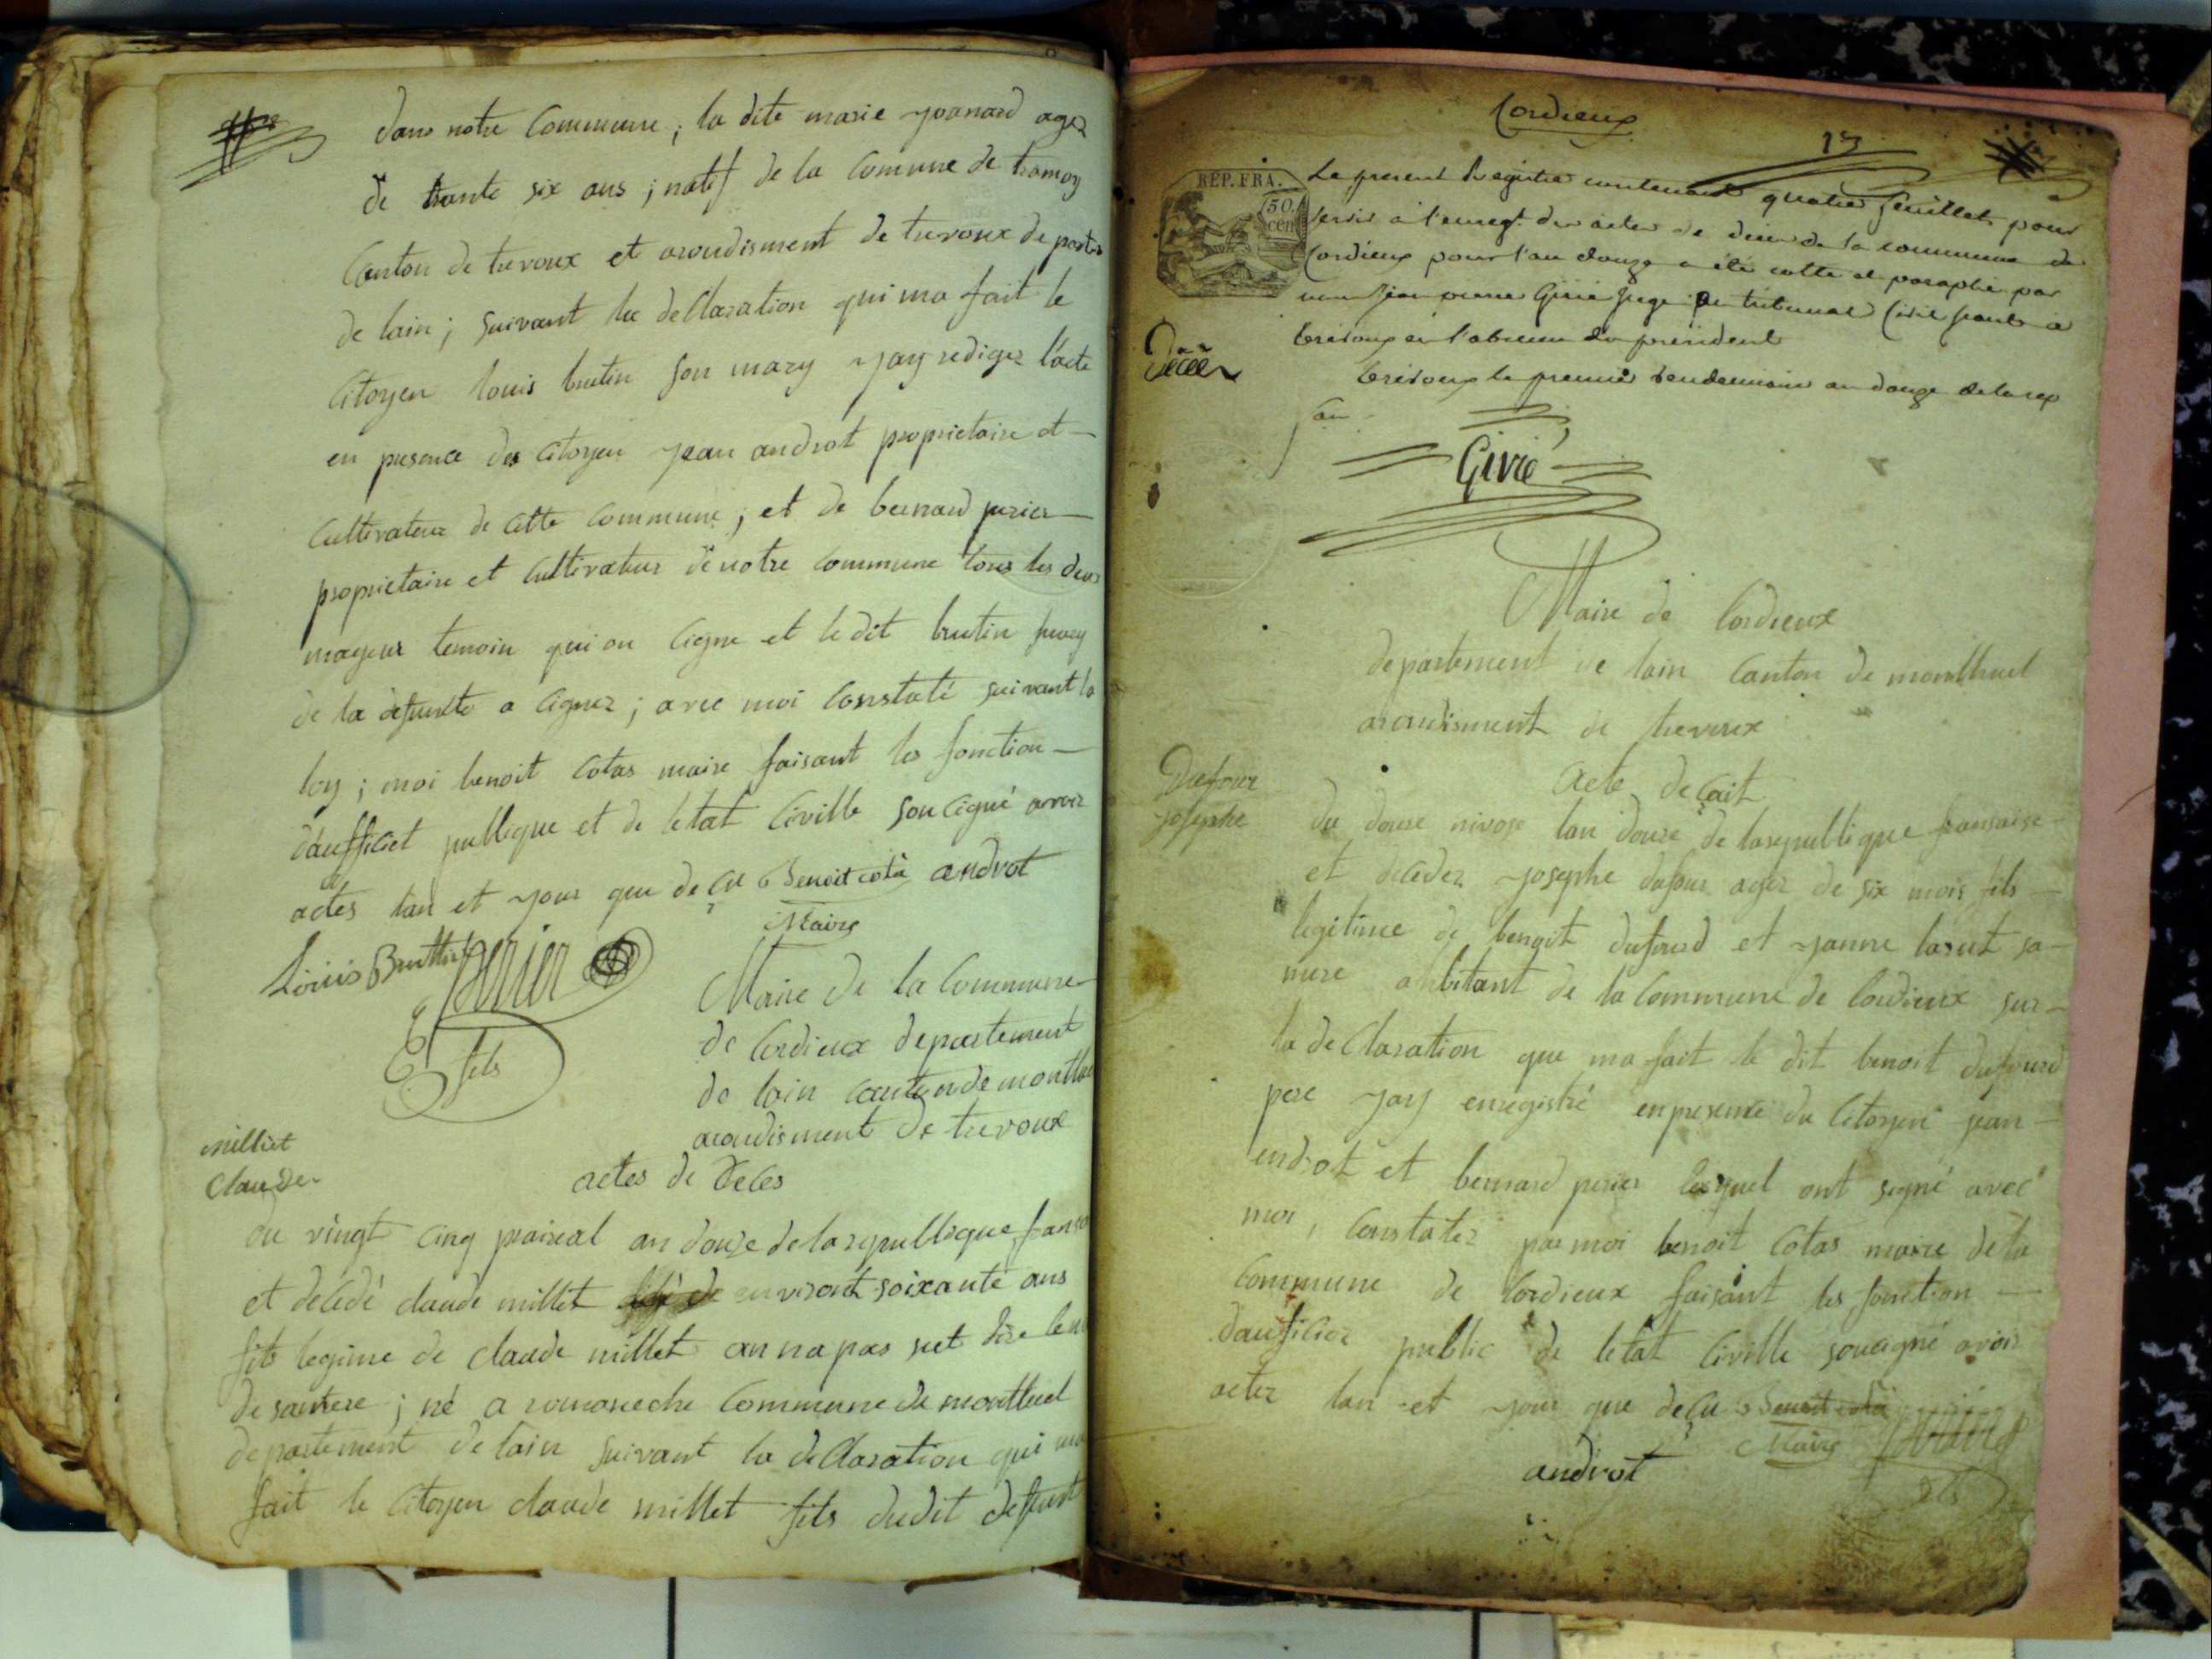 dans notre Commune ; la dite marie yoanard agez
de trante six ans ; natif de la Comune de tramoy
Canton de trevoux et arondisment de trevoux depart
de lain ; suivant la declaration qui ma fait le
Citoyen louis brutin son mary yay rediger lacte
en presence des Citoyen yean androt proprietaire et
Cultivateur de Cette Commune ; et de bernard perier
proprietaire et Cultivateur de notre Commune tous les deux
mageur temoin qui on Cigne et le dit brutin
de la defunte a Cignez ; avec moi Constaté suivant la
loy ; moi benoit Cotas maire faisant les fonction
dauffiliet publique et de letat Civille sou Cigné avoir
actes lan et your que deçu Benoit cotà androt
Maire
Louis Bruttin perier
fils
Maire de la Commune
de Cordieux departement
de lain canton de montlu
arondisment de trevoux
millet
Claude
actes de deces
du vingt Cinq praireal an douze de la republique fans
et decedé claude millet environt soixante ans
fits legime de claude millet on na pas sut dire le n
de sa mere ; né a romaneche Commune de montluel
departement de lain suivant la declaration qui ma
fait le Citoyen claude millet fits dudit defunt
Cordieux
REP. FRA.
50.
cen
Le present Registre contenant quatre feuillets pour
servir a l'enregt. des actes de deces de la commune de
Cordieux pour l'an douze a été cotté et paraphé par
nous Jean pierre Girié Juge au tribunal Civil seant a
trevoux en l'absence du president
trevoux le premier vendemiaire an douze de la rep
Girié
Maire de Cordieux
departement de lain Canton de montluel
arondisment de trevoux
Acte deçait
Dufour
yosephe
du douze nivose lan douze de la republique fransaise
et deceder yosephe dufour agez de six mois fils
legitime de benoit dufourd et yanne larut sa
mere abitant de la Commune de Cordieux sur
la declaration que ma fait le dit benoit dufourd
pere yay enregistré en presence du Citoyen jean
androt et bernard perier lesquel ont signé avec
moi, Constatez par moi benoit Cotas maire de la
Commune de Cordieux faisant les fonction
daufilier public de letat Civille soucigné avoir
actez lan et your que deçu Benoit cotà
Maire
androt